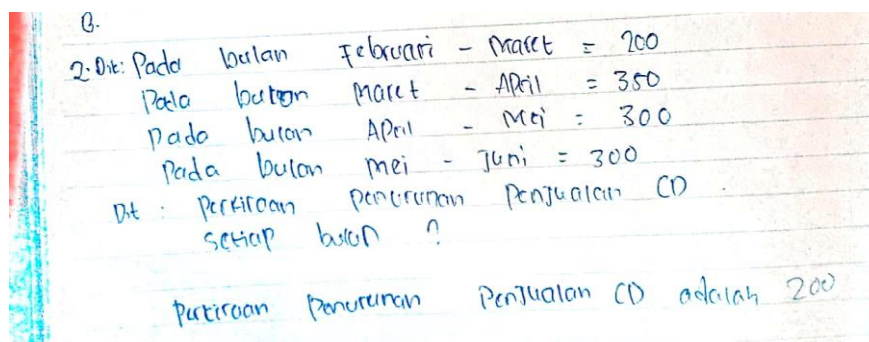 B.
2. Dik: Pada bulan Februari - Maret = 200
Pada bulan Maret - April = 350
Pada bulan April - Mei = 300
Pada bulan mei - Juni = 300
Dit : Perkiraan penurunan Penjualan CD
setiap bulan ?
Perkiraan Penurunan Penjualan CD adalah 200